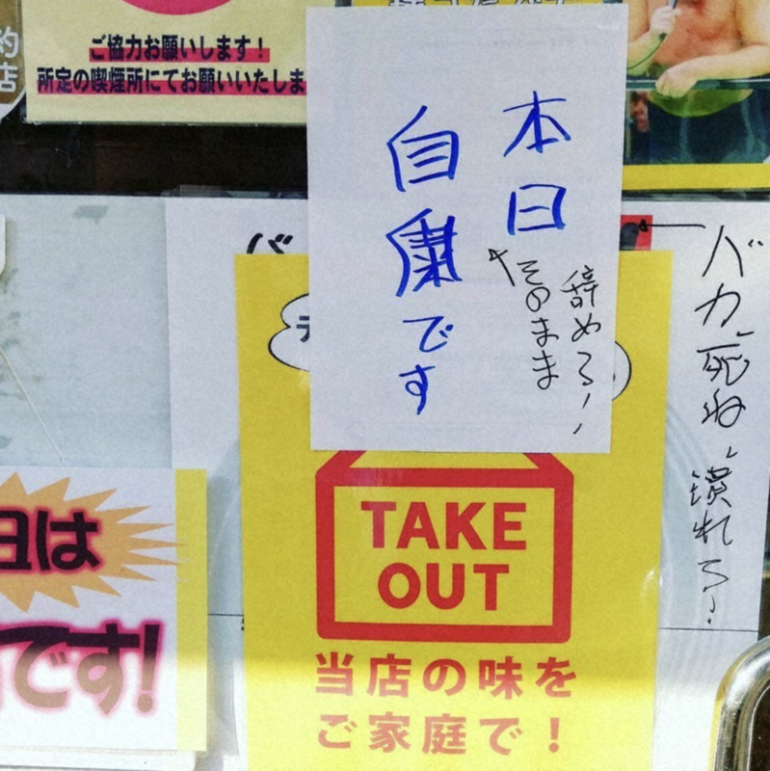 ご協力お願いします！
所定の喫煙所にてお願いいたしま
約
店
本日
自粛です
そのまま
辞めろ！
バ
バカ、死ね、潰れろ！
テ
日は
です!
TAKE
OUT
当店の味を
ご家庭で！